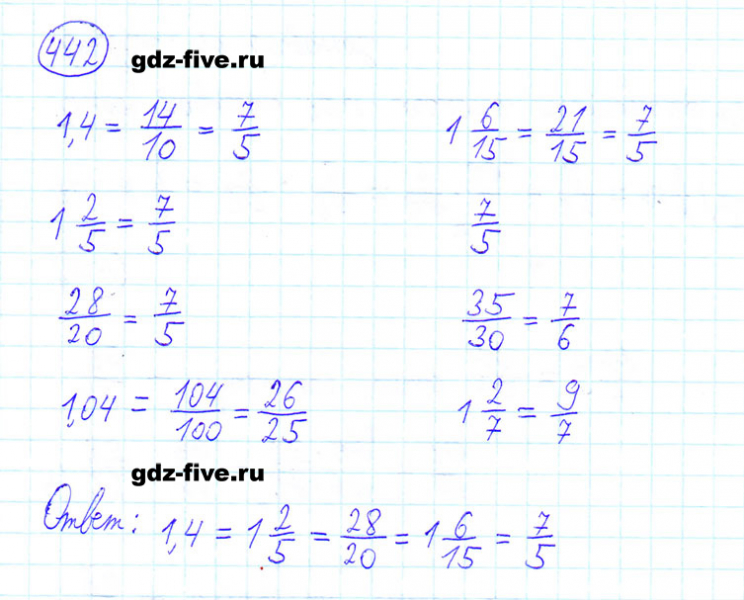 442 gdz-five.ru
1,4 = 14/10 = 7/5
1 6/15 = 21/15 = 7/5
1 2/5 = 7/5
7/5
28/20 = 7/5
35/30 = 7/6
1,04 = 104/100 = 26/25
1 2/7 = 9/7
gdz-five.ru
Ответ: 1,4 = 1 2/5 = 28/20 = 1 6/15 = 7/5